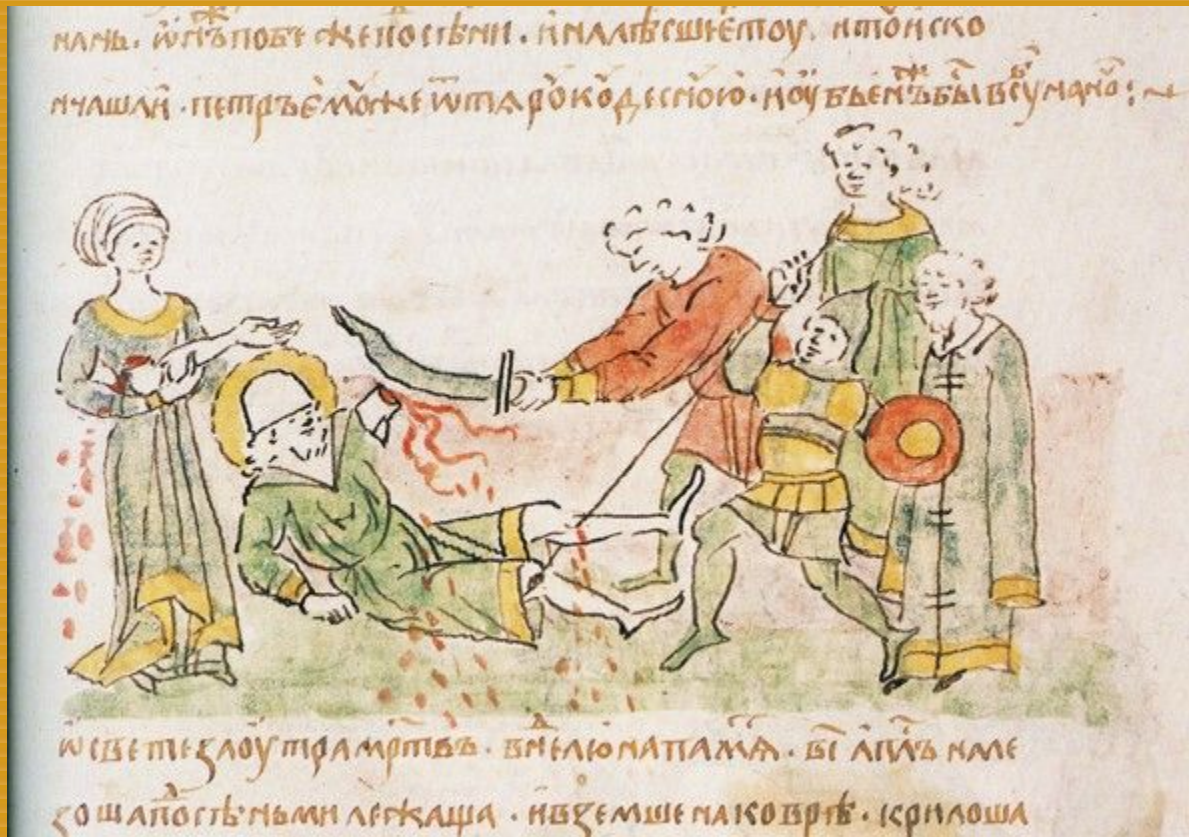 нань · ѡнъ побѣже по сѣни · и налѣсше єтоу · и тои ско
нчаша и · петръ ємоу же ѿтя роукоу десноую · и оубьенъ бы в соу на но :~
ѡсвете з лоутра мртвъ · в нелю на памⷮѧ · ві апⷭлъ нале
зоша поⷣ сѣньми лежаща · и вземше на коврѣ · крилоша